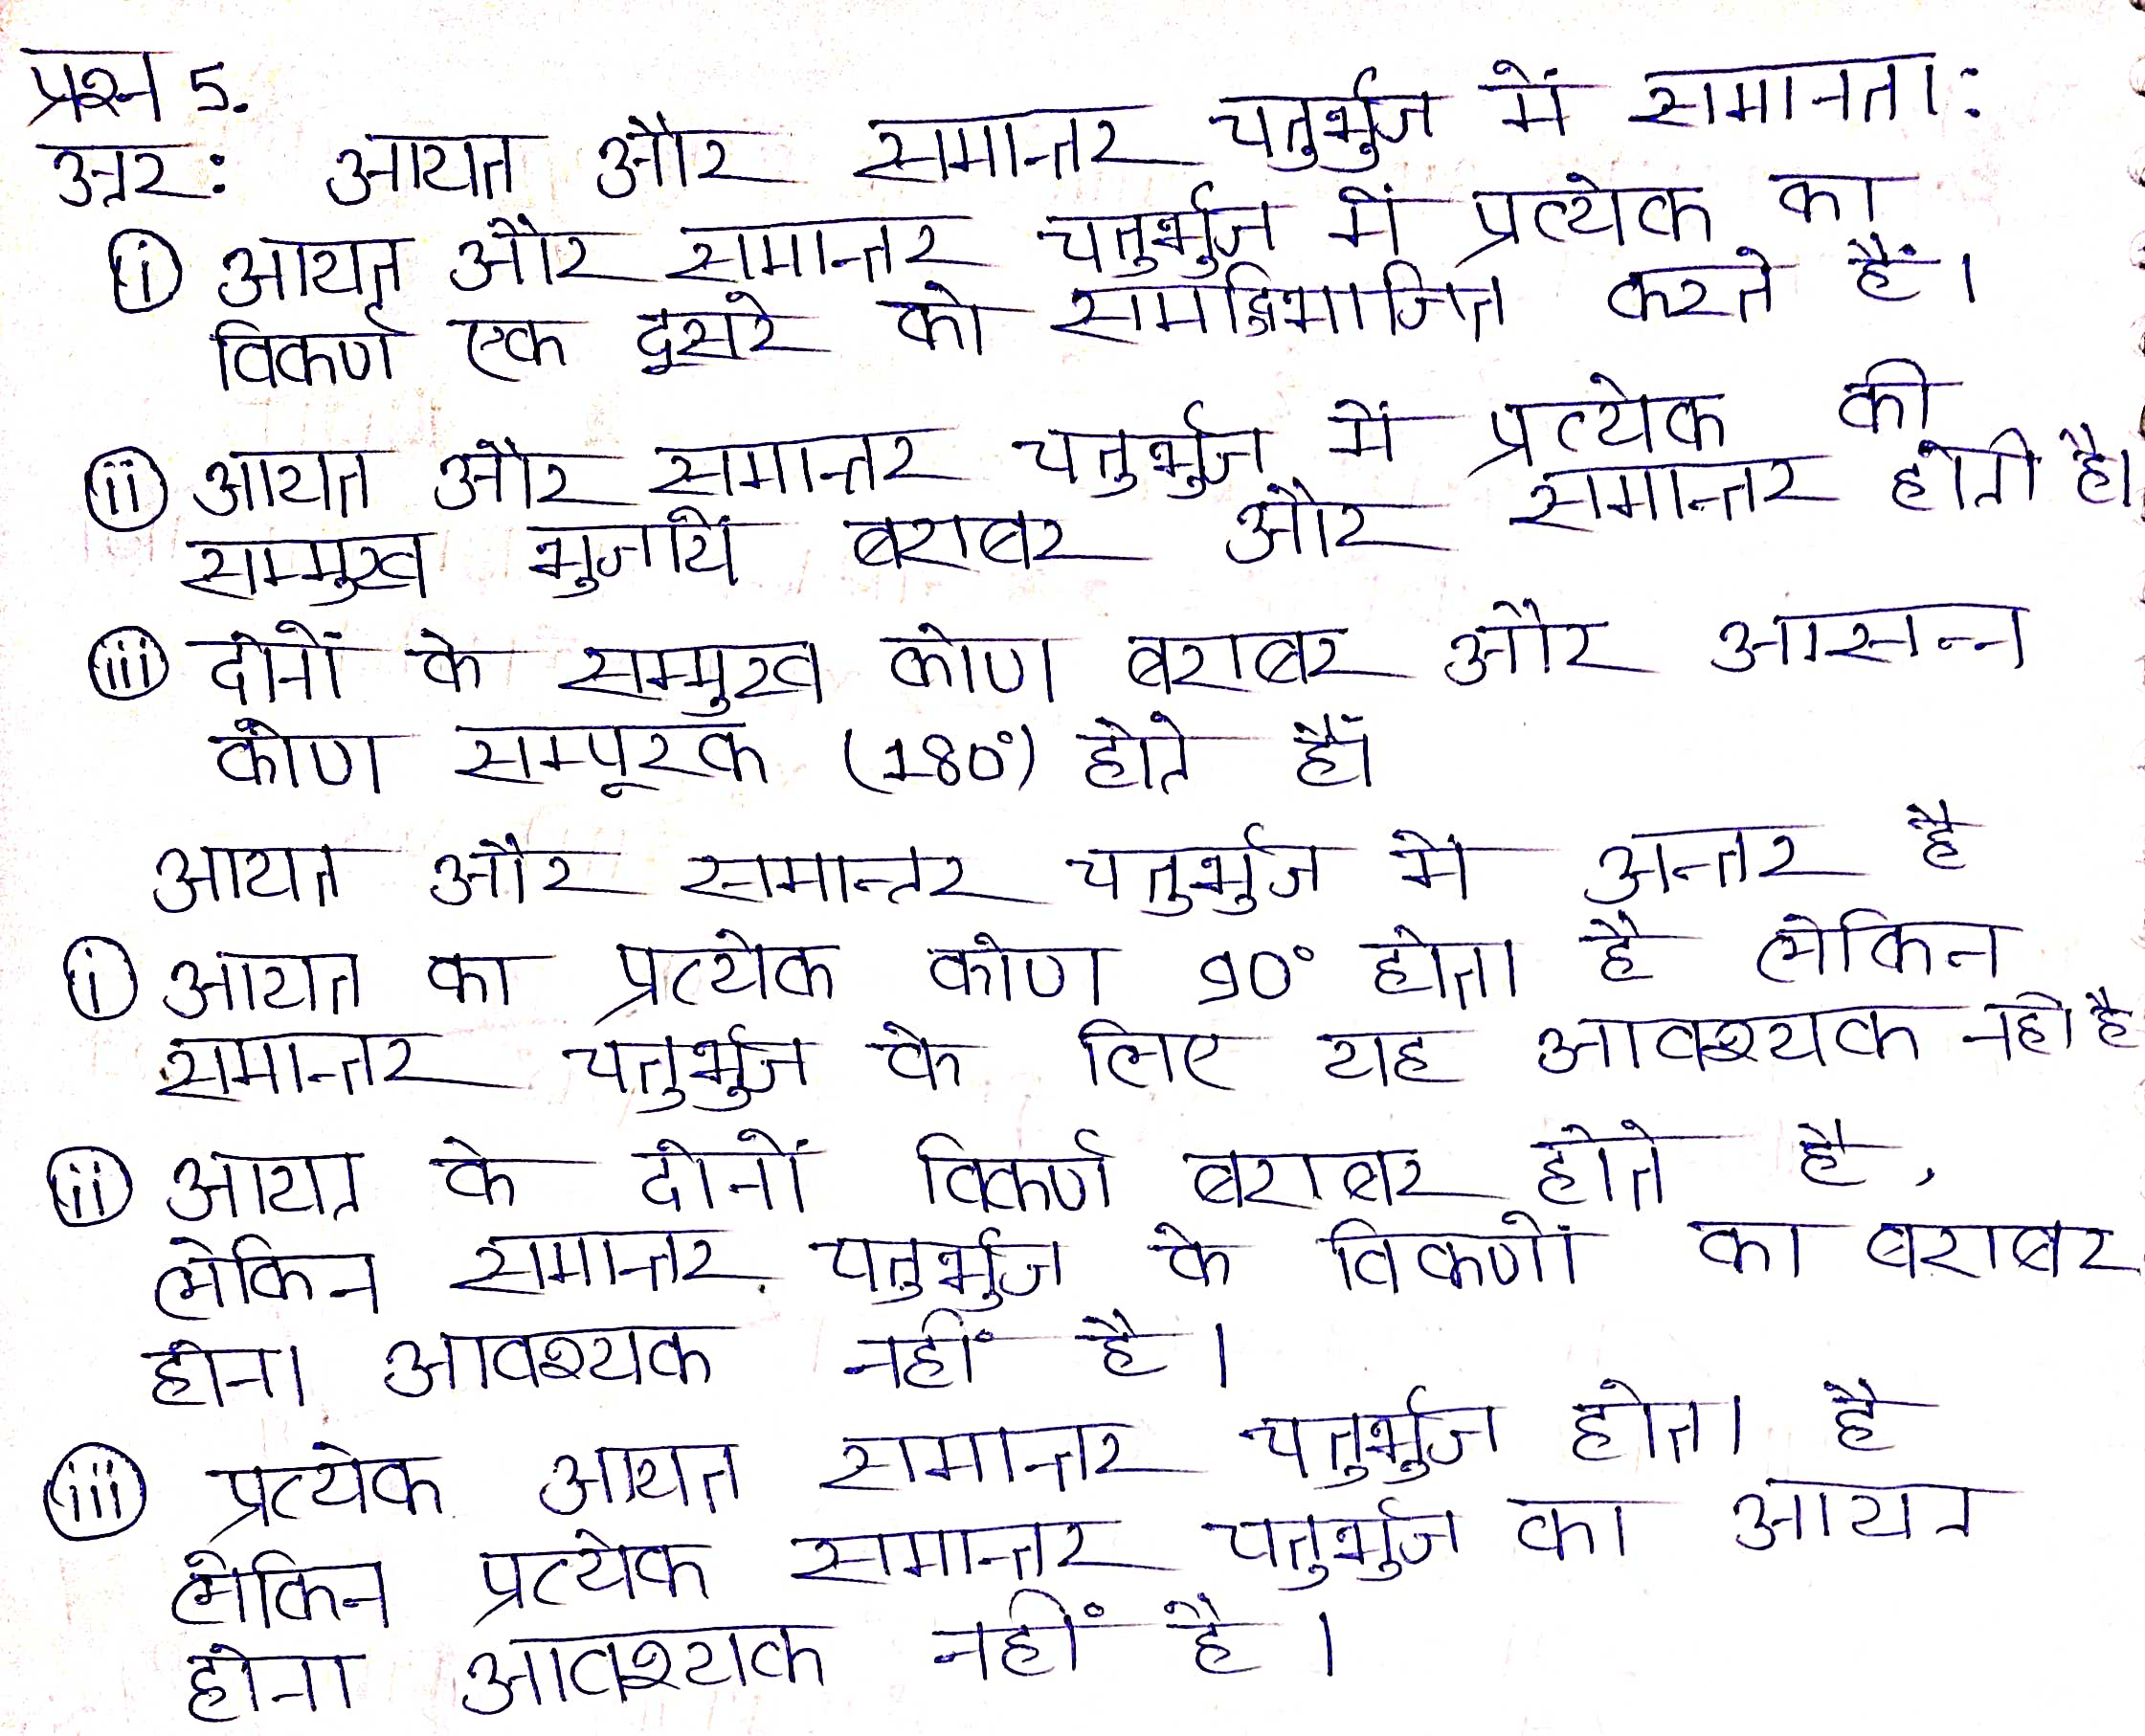 प्रश्न 5.
उत्तर: आयत और समान्तर चतुर्भुज में समानता:
(i) आयत और समान्तर चतुर्भुज में प्रत्येक का
विकर्ण एक दूसरे को समद्विभाजित करते हैं।
(ii) आयत और समान्तर चतुर्भुज में प्रत्येक की
सम्मुख भुजायें बराबर और समान्तर होती है।
(iii) दोनों के सम्मुख कोण बराबर और आसन्न
कोण सम्पूरक (180°) होते हैं।
आयत और समान्तर चतुर्भुज मे अन्तर है
(i) आयत का प्रत्येक कोण 90° होता है लेकिन
समान्तर चतुर्भुज के लिए यह आवश्यक नही है
(ii) आयत के दोनों विकर्ण बराबर होते है,
लेकिन समान्तर चतुर्भुज के विकर्णों का बराबर
होना आवश्यक नहीं है।
(iii) प्रत्येक आयत समान्तर चतुर्भुज होता है
लेकिन प्रत्येक समान्तर चतुर्भुज का आयत
होना आवश्यक नहीं है।